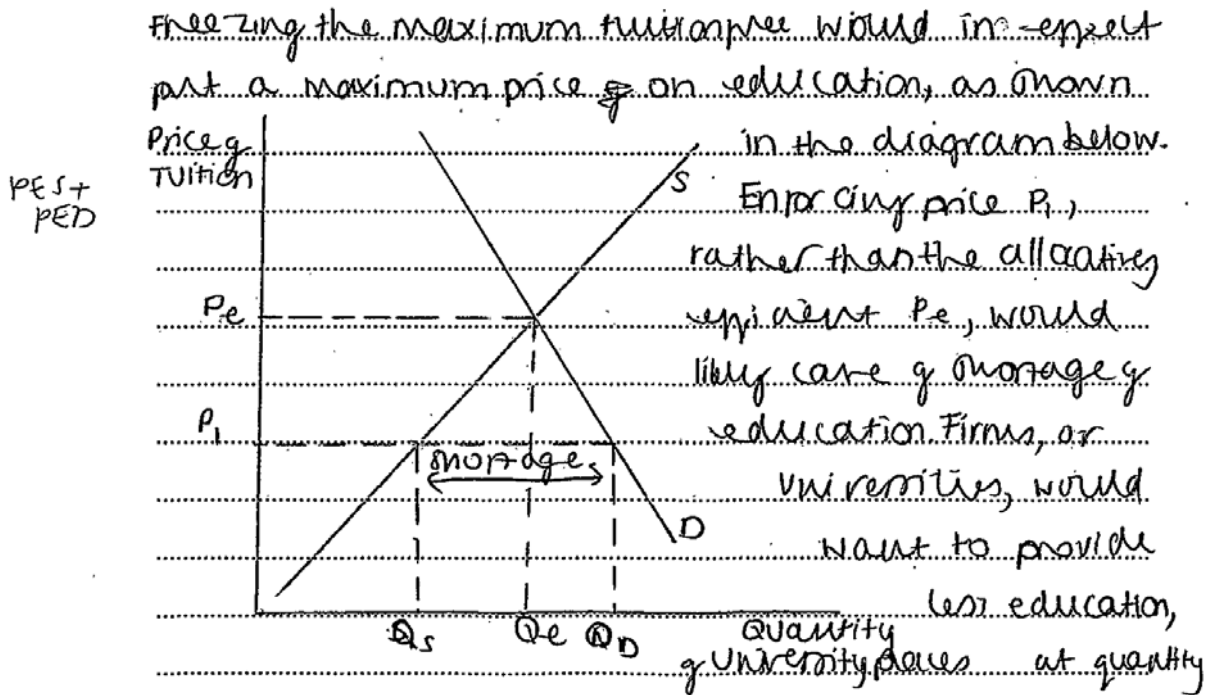 Freezing the maximum tuition fee would in effect
put a maximum price on education, as shown
in the diagram below.
Enforcing price P1,
rather than the allocatively
efficient Pe, would
likely cause a shortage of
education. Firms, or
universities, would
want to provide
less education,
of university places at quantity
PES+
PED
Price of
Tuition
S
Pe
P1
shortage
D
Qs Qe QD Quantity